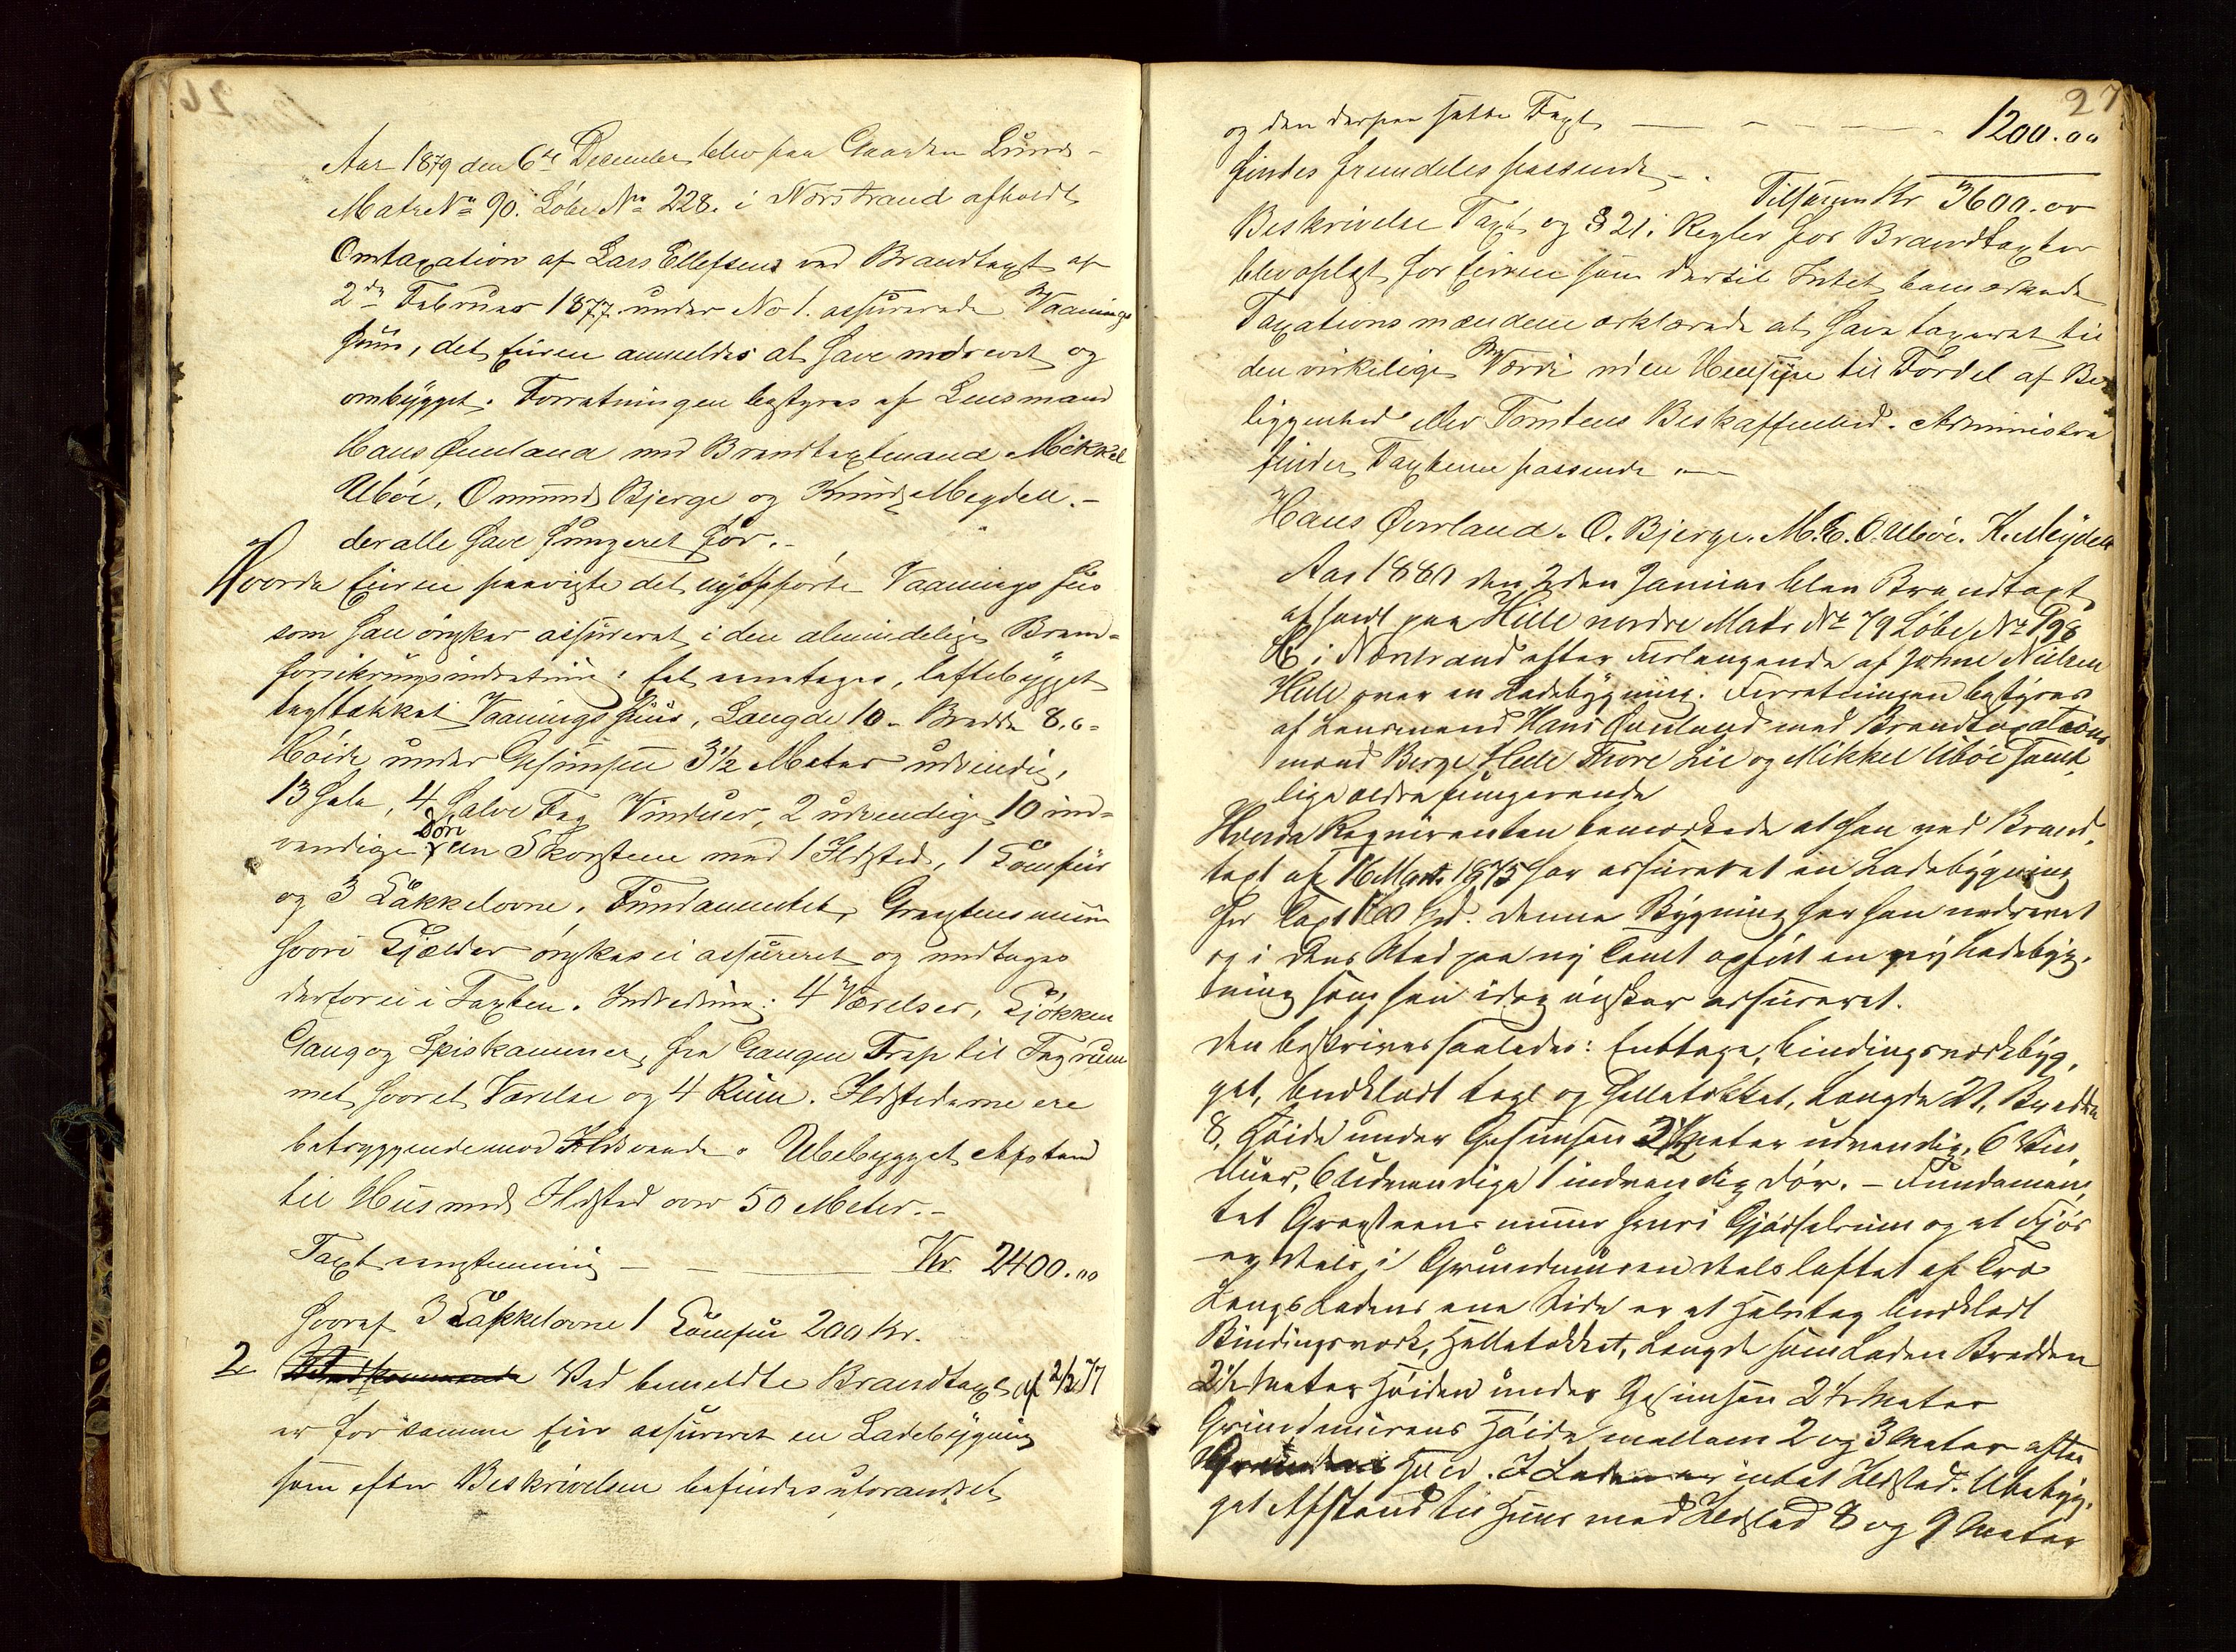 Aar 1879 den 6te December blev paa Gaarden Lunde
Matr No 90. Løbe No 228. i Nærstrand afholdt
Omtaxation af Lars Ellefsens ved Brandtaxt af
2den Februar 1877 under No 1. assurerede Vaanings
huus, det Eieren anmeldes at have nedrevet og
ombygget. Forretningen bestyres af Lensmand
Hans Øverland med Brandtaxtmænd Mikkel
Ubøe, Omund Bjerge og Knud Meydell.-
der alle have fungeret før.-
Hvorda Eieren paaviste det nyopførte Vaaningshus
som han ønsker assureret i den almindelige Brand=
forsikringsindretning: Et etages, loftebygget
tagtækket Vaaningshuus, Længde 10- Bredde 8,6-
Høide under Gesimsen 3½ Meter udvendig,
13 hele, 4 halve Fag Vinduer, 2 udvendige 10 ind=
vendige Døre en Skorsteen med 1 Ildsted, 1 Komfur
og 3 Kakkelovne. Fundamentet, Graastensmuur
hvori Kjælder ønskes ei assureret og medtages
derfor ei i Taxten. Indredning: 4 Værelser, Kjøkken
Gang og Spiskammer, fra Gangen Trap til Tagrum
met hvor et Værelse og 4 Rum. Ildstederne ere
betryggende mod Ildsvaade. Ubebygget Afstand
til Huus med Ildsted over 50 Meter.-
Taxt Kr. 2400.00
hvoraf 3 Kakkelovne 1 Komfur 200 Kr.
2 Ved bemeldte Brandtaxt af 2/2 77
er for samme Eier assureret en Ladebygning
som efter Beskrivelsen befindes uforandret
27
og den derpaa satte Taxt 1200.00
findes fremdeles passende -.
Tilsammen Kr 3600.00
Beskrivelse Taxt og § 21 i Regler for Brandtaxter
blev oplæst for Eieren som dertil Intet bemærkede
Taxationsmændene erklærede at have taxeret til
den virkelige Værdi uden Hensyn til Fordel af Be
liggenhed eller Tomtens Beskaffenhed. Administra
finder Taxterne passende
Hans Øverland. O. Bjerge. M. E. O. Ubøe. K. Meydell
Aar 1880 den 2den Januar blev Brandtaxt
afholdt paa Hille nordre Matr No 79 Løbe No 198
b i Nærstrand efter Forlangende af Johne Nielsen
Hille over en Ladebygning. Forretningen bestyres
af Lensmand Hans Øverland med Brandtaxations
mænd Berge Hille Thore Lie og Mikkel Ubøe samt
lige ældre fungerende
Hvorda Reqvirenten bemærkede at han ved Brand
taxt af 16 Marts 1875 har assureret en Ladebygning
for Taxt Spd. denne Bygning har han nedrevet
og i dens Sted paa ny Tomt opført en ny Ladebyg.
ning som han idag ønsker assureret.
Den beskrives saaledes: Entetage, bindingsværksbyg,
get, bordklædt tagl og helletækket, Længde 21, Bredde
8, Høide under Gesimsen 3½ Meter udvendig, 6 Vin,
duer, 6 udvendige 1 indvendig Dør. - Fundamen,
tet Graasteensmuur hvori Gjødselrum og et Fjøs
er deels i Grundmuren deels loftet af Træ
Langs Ladens ene Side er et Halvtag bordklædt
Bindingsværk, Helletækket, Længde som Laden Bredden
2½ Meter Høiden under Gesimsen 2½ Meter
Grundmurens Høide mellem 2 og 3 Meter efter
I Laden er intet Ildsted. Ubebyg,
get Afstand til Huus med Ildsted 8 og 9 Meter